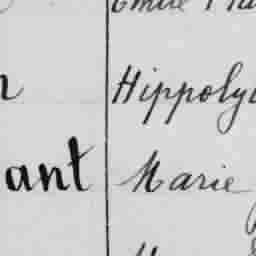 Emile
Hippoly
ant Marie